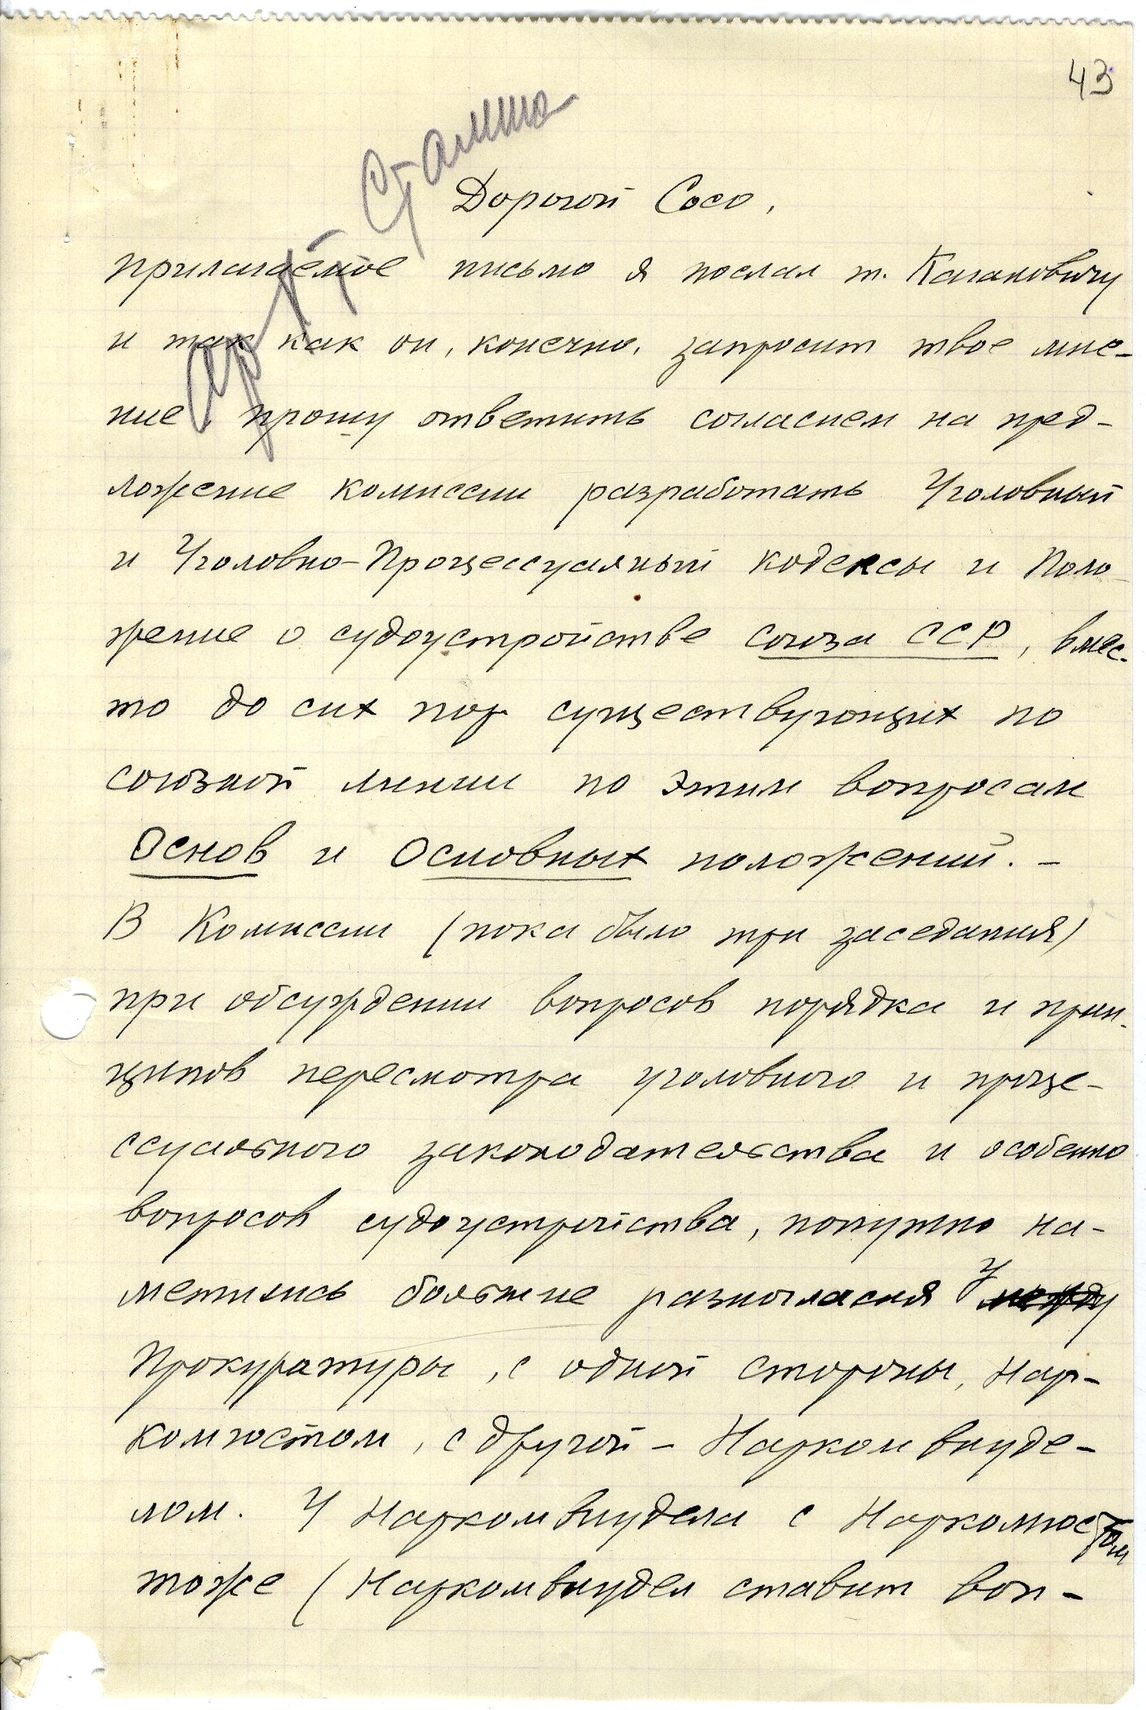 43
Арх. Сталина
Дорогой Сосо,
прилагаемое письмо я послал т. Кагановичу
и так как он, конечно, запросит твое мне-
ние, прошу ответить согласием на пред-
ложение комиссии разработать Уголовный
и Уголовно-Процессуальный кодексы и Поло-
жение о судоустройстве Союза ССР, вмес-
то до сих пор существующих по
союзной линии по этим вопросам
Основ и Основных положений. –
В Комиссии (пока было три заседания)
при обсуждении вопросов порядка и прин-
ципов пересмотра уголовного и проце-
ссуального законодательства и особенно
вопросов судоустройства, попутно на-
метились большие разногласия у между
Прокуратуры, с одной стороны, Нар-
комюстом, с другой – Наркомвнуде-
лом. У Наркомвнудела с Наркомюстом
тоже (Наркомвнудел ставит воп-